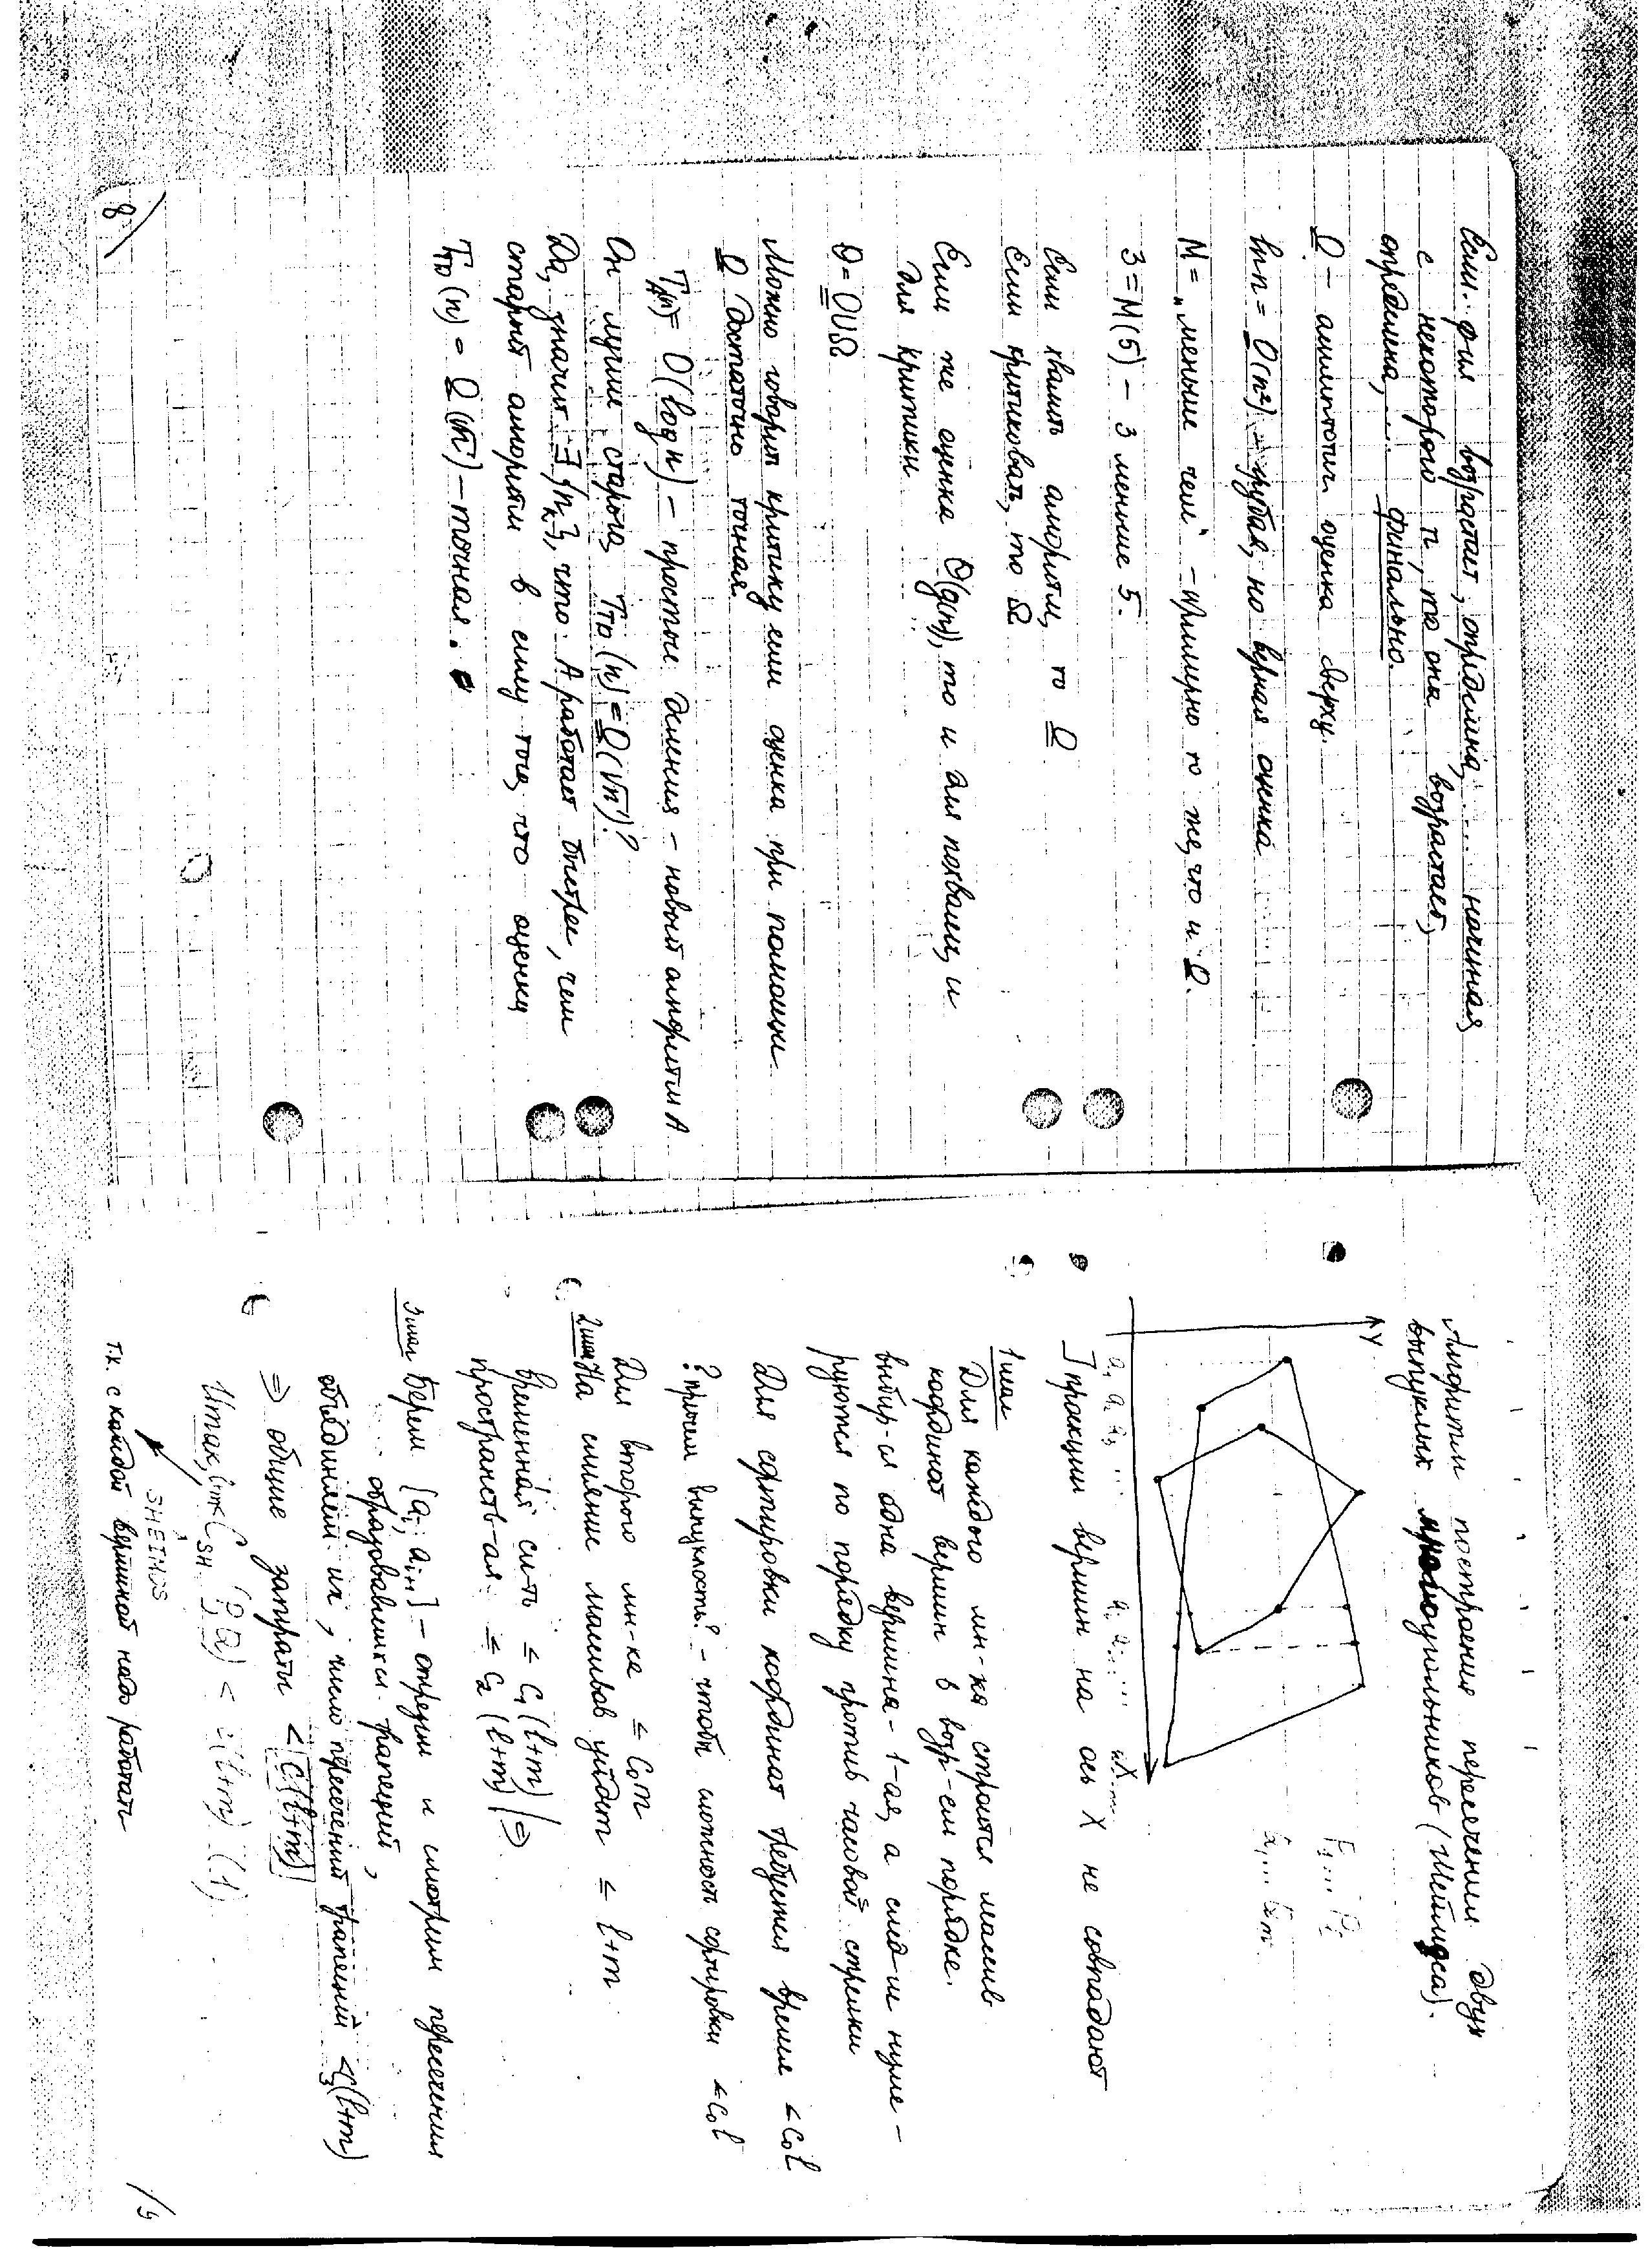 Если ф-ия возрастает, определена, ... начиная
с некоторого n, то она возрастает,
определена, ... финально.
O – асимптотич. оценка сверху.
ln n = O(n²) – грубая, но верная оценка
M = „меньше чем“ – примерно то же, что и O.
3 = M(5) – 3 меньше 5.
Если хвалить алгоритм, то O
Если критиковать, то Ω
Если же оценка Θ(g(n)), то и для похвалы, и
для критики
Θ = O∪Ω
Можно говорить критику если оценка при помощи
O достаточно точная.
T_A(n) = O(log n) – простые деления – новый алгоритм A
Он лучше старого, T_TD(n) = O(√n)?
Да, значит ∃{n_k}, что A работает быстрее, чем
старый алгоритм в силу того, что оценка
T_TD(n) = O(√n) – точная.
8
Алгоритм построения пересечения двух
выпуклых многоугольников (Шеймоса).
Y
P₁ ... Pₗ
Q₁ ... Qₘ
a₁ a₂ a₃ ... X
] проекции вершин на ось X не совпадают
1 шаг
Для каждого мн-ка строится массив
координат вершин в возр-ем порядке.
выбир-ся одна вершина – 1-ая, а след-ие нуме-
руются по порядку против часовой стрелки
Для сортировки координат требуется время ≤ C₀l
? причем выпуклость? – чтобы сложность сортировки ≤ C₀l
Для второго мн-ка ≤ C₀m
2 шаг На слияние массивов уйдёт ≤ l+m
Временная сл-ть ≤ C₁(l+m) ⇒
пространств-ая ≤ C₂(l+m)
3 шаг Берем [aᵢ, aᵢ₊₁] – отрезки и смотрим пересечения
образовавшихся трапеций,
объединяем их, число пересечений трапеций ≤ C₃(l+m)
⇒ общие затраты < C(l+m)
Итак, C_SH (P,Q) < C(l+m) (1)
SHEIMOS
т.к. с каждой вершиной надо работать
9